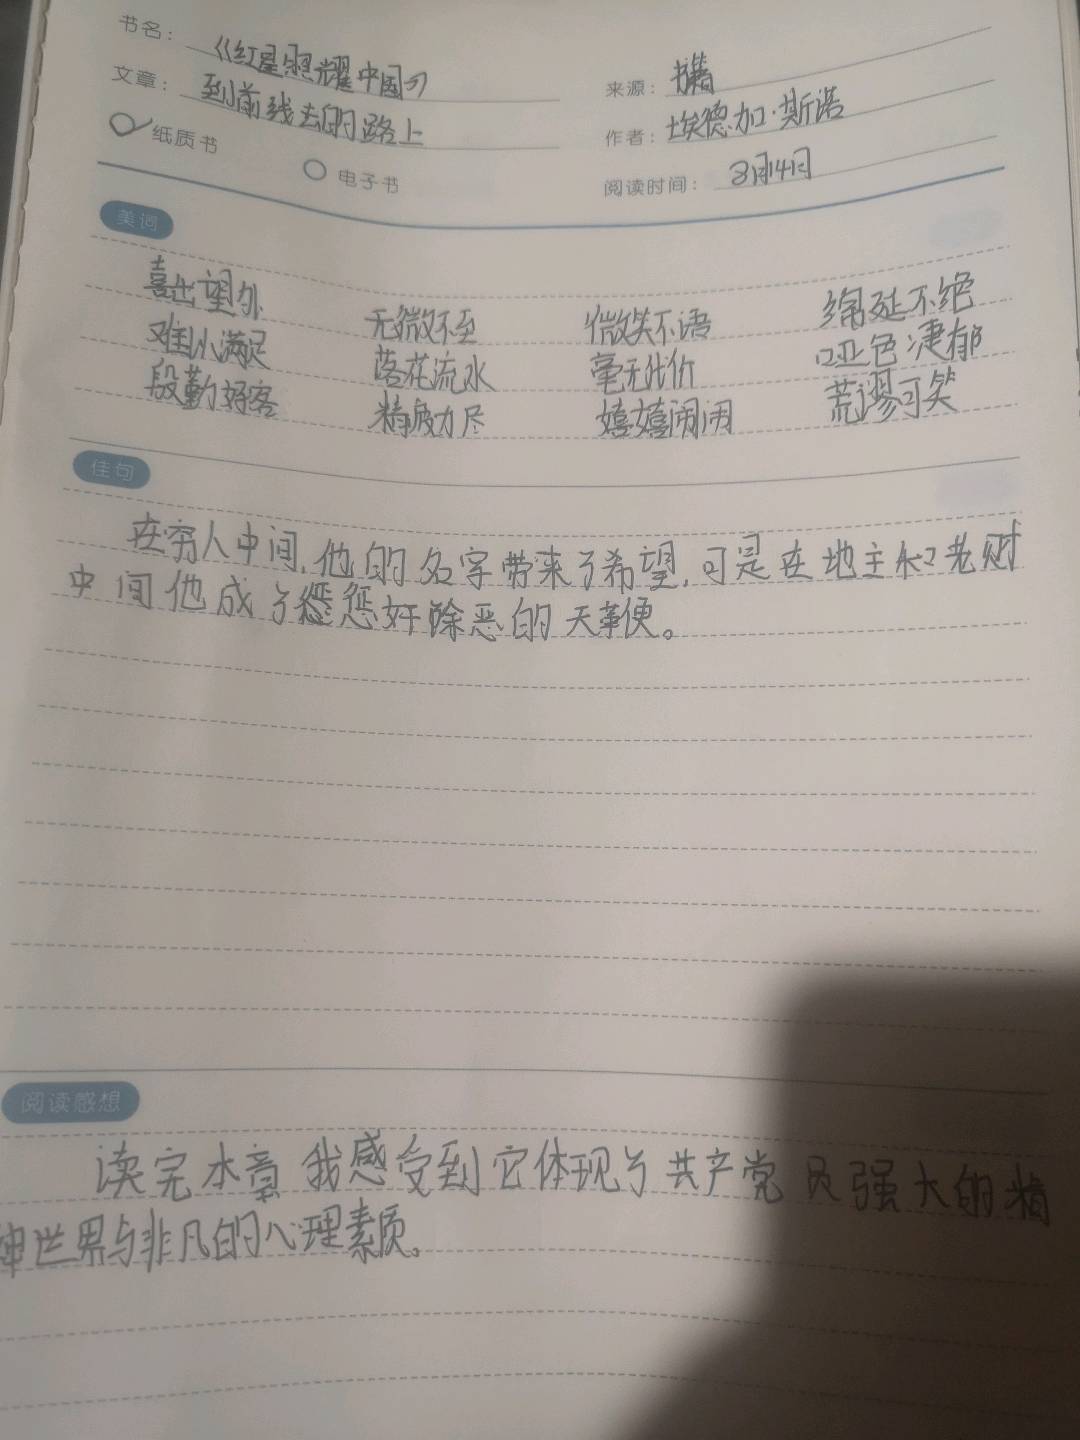 书名： 《红星照耀中国》
来源： 书籍
文章： 到前线去的路上
作者： 埃德加·斯诺
纸质书 电子书
阅读时间： 8月14日
美词
喜出望外 无微不至 微笑不语 绵延不绝
难以满足 落花流水 毫无代价
殷勤好客 精疲力尽 嬉嬉闹闹 荒谬可笑
佳句
在穷人中间,他的名字带来了希望,可是在地主和老财
中间他成了惩奸除恶的天使。
阅读感想
读完本章 我感受到它体现了共产党员强大的精
神世界与非凡的心理素质。